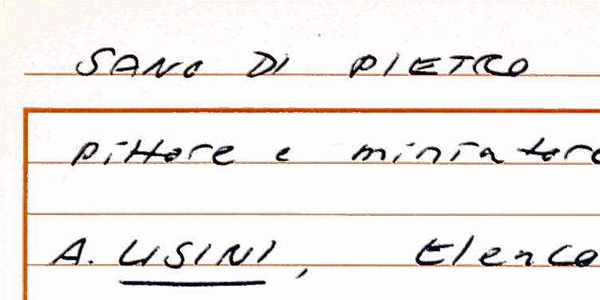 SANO DI PIETRO
pittore e miniatore
A. LISINI, Elenco